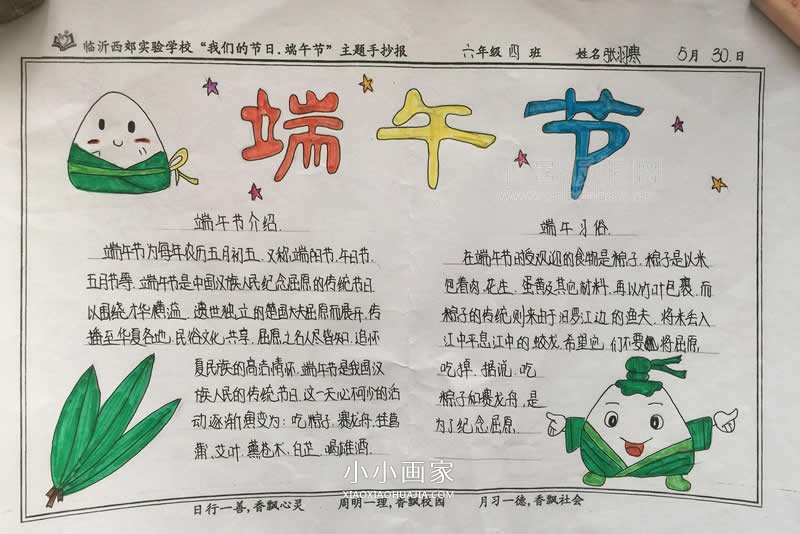 临沂西郊实验学校“我们的节日.端午节”主题手抄报 六年级四班 姓名张羽寒 5月30日
端午节
端午节介绍
端午节为每年农历五月初五.又称端阳节.午日节.
五月节等.端午节是中国汉族人民纪念屈原的传统节日
以围绕才华横溢.遗世独立的楚国大夫屈原而展开.传
播至华夏各地.民俗文化共享.屈原之名人尽皆知.追怀
夏民族的高洁情怀.端午节是我国汉
族人民的传统节日.这一天必不可少的活
动逐渐演变为:吃粽子.赛龙舟.挂菖
蒲.艾叶.薰苍术.白芷.喝雄酒.
端午习俗
在端午节时受欢迎的食物是粽子.粽子是以米
包着肉.花生.蛋黄及其他材料.再以竹叶包裹.而
粽子的传统.则来由于汨罗江边的渔夫.将米丢入
江中平息江中的蛟龙.希望它们不要将屈原
吃掉.据说.吃
粽子和赛龙舟.是
为了纪念屈原
小小画家
XIAOXIAOHUAJIA.COM
日行一善,香飘心灵 周明一理,香飘校园 月习一德,香飘社会